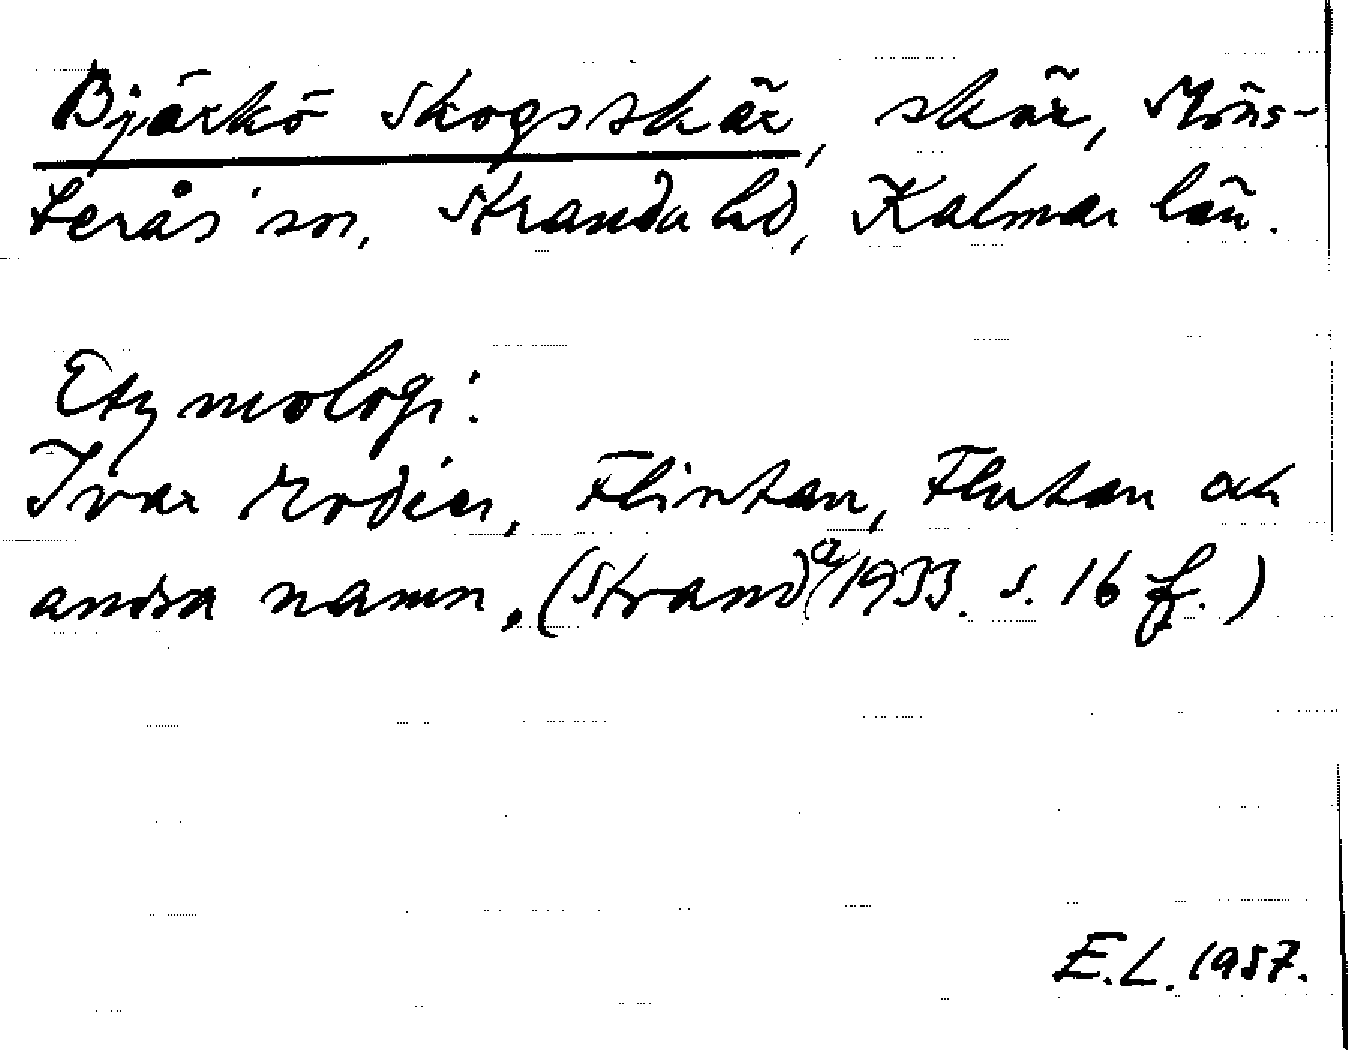 Björkö Skogsskär, skär, Möns-
terås sn, Stranda hd, Kalmar län.
Etymologi:
Ivar Modéer, Flintan, Flutan och
andra namn. (Stranda 1933. s. 16 f.)
E.L. 1957.